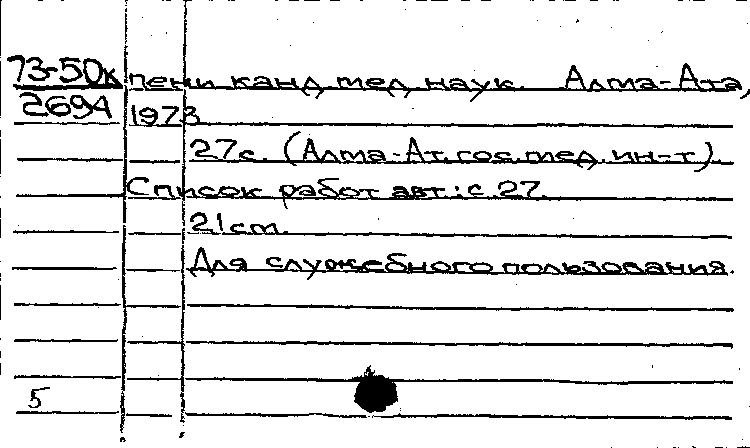 73-50к пени канд. мед. наук. Алма-Ата,
2694 1973.
27с. (Алма-Ат. гос. мед. ин-т).
Список работ авт.: с. 27.
21 cm.
Для служебного пользования.
5